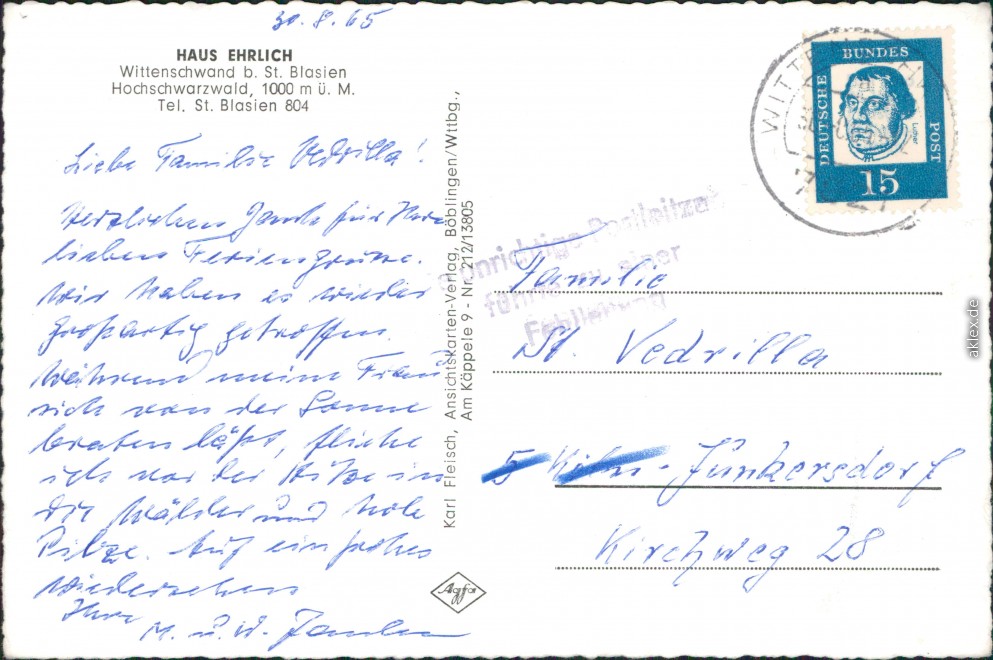 30.8.65
HAUS EHRLICH
Wittenschwand b. St. Blasien
Hochschwarzwald, 1000 m ü. M.
Tel. St. Blasien 804
Liebe Familie Vedrilla!
Herzlichen Dank für Ihre
lieben Feriengrüsse.
Wir haben es wieder
großartig getroffen.
Während meine Frau
sich von der Sonne
braten läßt, fliehe
ich vor der Hitze in
die Wälder und hole
Pilze. Auf ein frohes
Wiedersehen
Ihre
M. u. W.
Karl Fleisch, Ansichtskarten-Verlag, Böblingen/Wttbg.,
Am Käppele 9 - Nr. 212/13805
Agfa
DEUTSCHE
BUNDES
POST
Luther
15
Unrichtige Postleitza
führte zu einer
Fehlleitung
Familie
St. Vedrilla
5 Köln-Junkersdorf
Kirchweg 28
aklex.de